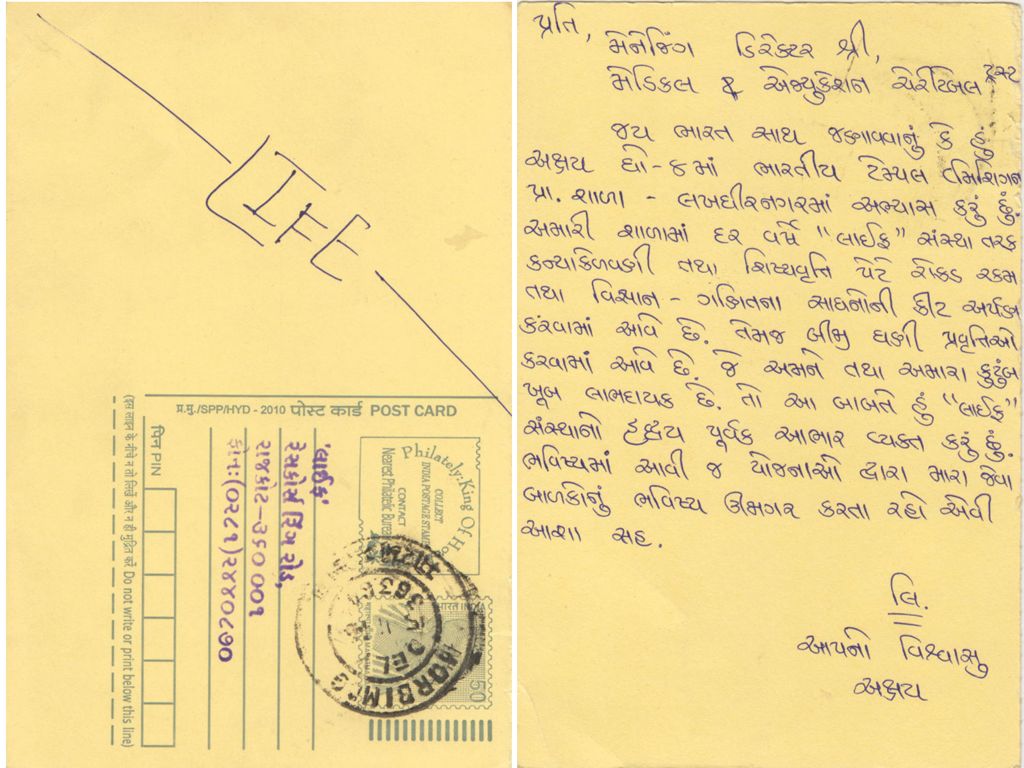 LIFE
प्र.मु./SPP/HYD - 2010 पोस्ट कार्ड POST CARD
Philately:King Of
COLLECT
INDIA POSTAGE STAMPS
CONTACT
Nearest Philatelic Bureau
भारत INDIA
50
MORBI
DEL
'લાઈફ'
રેસકોર્સ રિંગ રોડ,
રાજકોટ-૩૬૦ ૦૦૧
ફોન:(૦૨૮૧)૨૪૪૦૮૭૦
पिन PIN
(इस लाइन के नीचे न तो लिखें और न ही मुद्रित करें Do not write or print below this line)
પ્રતિ,
મેનેજિંગ ડિરેક્ટર શ્રી,
મેડિકલ & એજ્યુકેશન ચેરીટેબલ ટ્રસ્ટ
જય ભારત સાથ જણાવવાનું કે હું
અક્ષય ધો-૪માં ભારતીય ટેમ્પલ
પ્રા. શાળા - લખધીરનગરમાં અભ્યાસ કરું છું.
અમારી શાળામાં દર વર્ષે "લાઈફ" સંસ્થા તરફ
કન્યાકેળવણી તથા શિષ્યવૃત્તિ પેટે રોકડ રકમ
તથા વિજ્ઞાન - ગણિતના સાધનોની કીટ અર્પણ
કરવામાં આવે છે. તેમજ બીજી ઘણી પ્રવૃત્તિઓ
કરવામાં આવે છે. જે અમને તથા અમારા કુટુંબ
ખૂબ લાભદાયક છે. તો આ બાબતે હું "લાઈફ"
સંસ્થાનો હૃદય પૂર્વક આભાર વ્યક્ત કરું છું.
ભવિષ્યમાં આવી જ યોજનાઓ દ્વારા મારા જેવા
બાળકોનું ભવિષ્ય ઊજાગર કરતા રહો એવી
આશા સહ.
લિ.
આપનો વિશ્વાસુ
અક્ષય